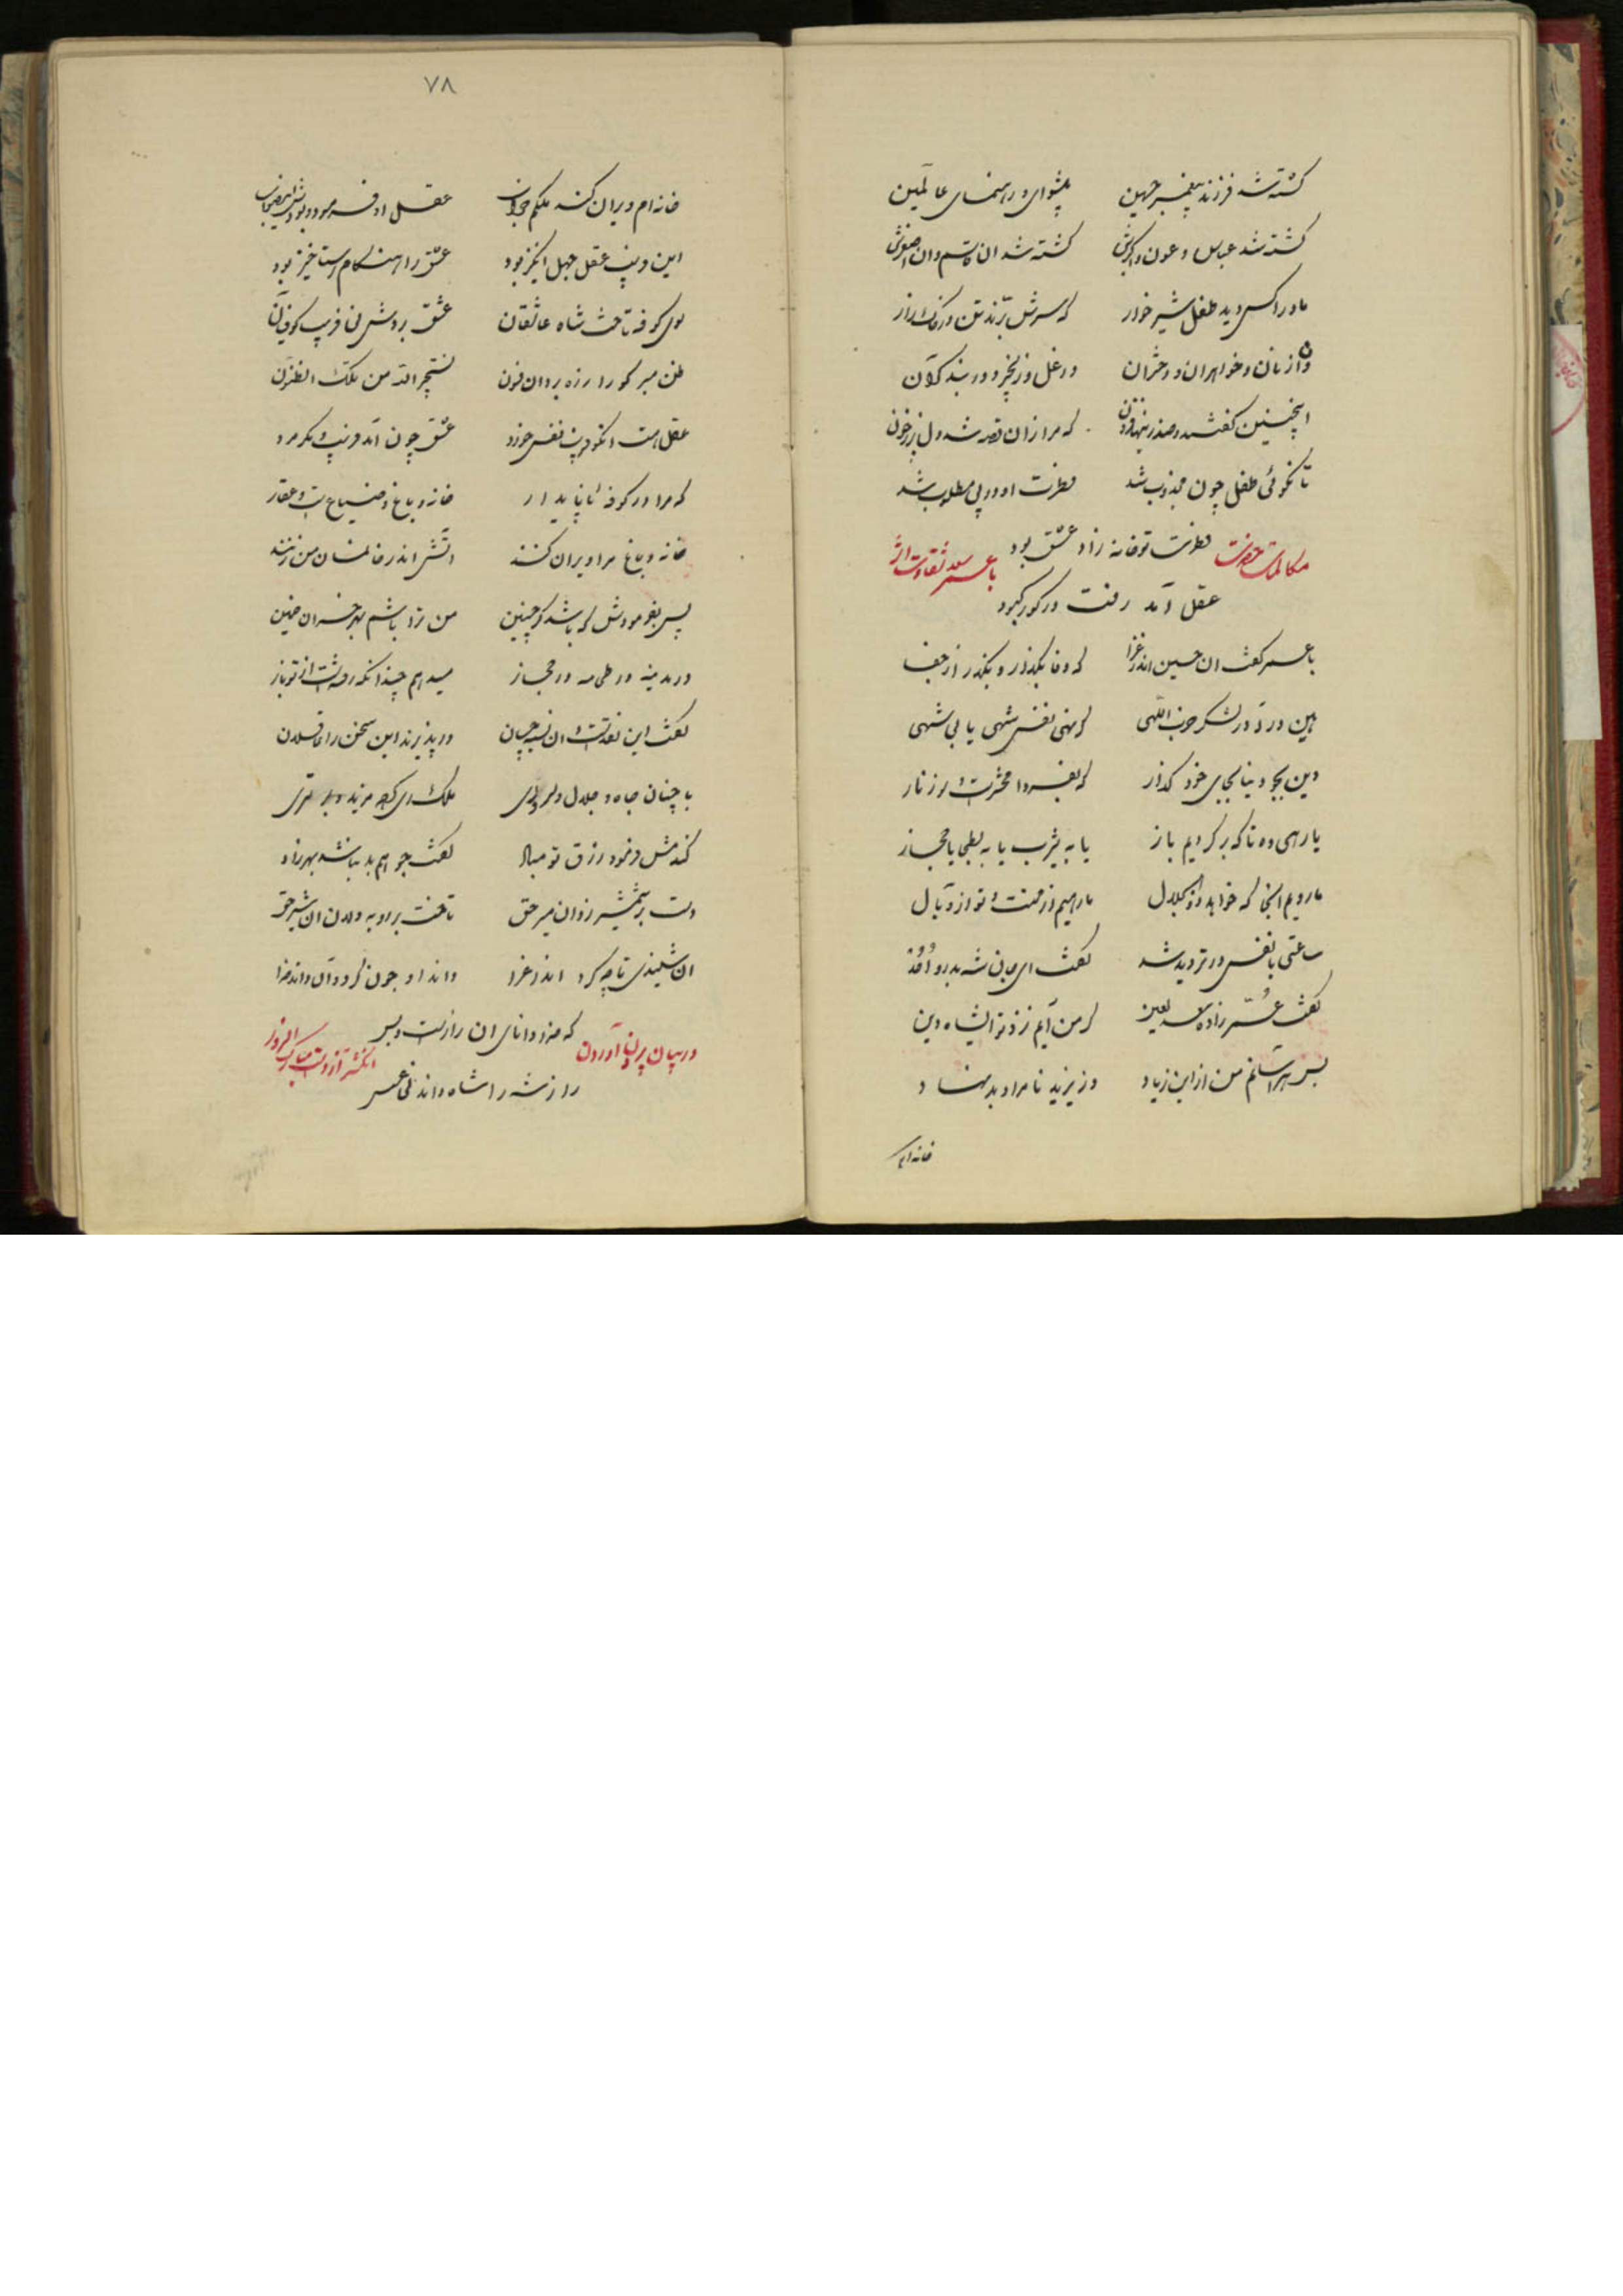 کشته شد فرزند پیغمبر جهین پیشوای و رهنمای عالمین
کشته شد عباس و عون و اکبرش کشته شد ان قاسم و ان اصغرش
مادرا کس دید طفل شیر خوار که سرش برند تن در خاک زار
و از زنان و خواهران و دختران در غل و زنجیر و در بند گران
اینچنین گفتند که مرا زان قصه شد دل پر ز خون
تا نگوئی طفل چون مجذوب شد فطرت او در پی مطلوب شد
فطرت تو خانه زاد عشق بود
مکالمات حضرت با عمر سعد شقاوت اثر
عقل آمد رفت در کور کبود
با عمر گفت ان حسین اندر غزا که وفا بگذار و بگذر از جفا
هین در آ در لشکر حزب اللهی که نهی نفس شهی یا بی شهی
دین بجو دنیا بجای خود گذار که بفردا محشرت و روز نار
یا رهی ده تا که برگردیم باز یا به یثرب یا به بطحی یا حجاز
ما رویم انجا که خواهد ذو الجلال ما رهیم از محنت و تو از وبال
ساعتی با نفس در تردید شد گفت ای
گفت عمر زاده سعد لعین که من آیم نزد تو ایشاه دین
بس هراسانم من از ابن زیاد وز یزید نامراد بد نهاد
خانه ام
۷۸
خانه ام ویران کند ملکم خراب عقل او فرمود
این فریب عقل جهل انگیز بود عشق را هنگام رستاخیز بود
سوی کوفه تاخت شاه عاشقان عشق بردش نی فریب کوفیان
ظن مبر کو را رزه بردان فون نستجیر الله من تلک الظنون
عقل هست انکو فریب نفس خورد عشق چون آمد فریب و مکر مرد
که مرا در کوفه ناپایدار خانه و باغ و ضیاع است و عقار
خانه و باغ مرا ویران کنند اتش اندر خانمان من زنند
پس بفرمودش که باشد گر چنین من ترا باشم بهر خسران ضمین
در مدینه در طی مه در حجاز میدهم چندانکه رفته است از تو باز
گفت این نقد است و ان نسیه چسان در پذیرند این سخن را عاقلان
با چنان جاه و جلال و سروری ملک ری که
گندمش فرمود رزق تو مباد گفت جو هم بد نباشد بهر زاد
دست بر شمشیر زد ان میر حق تاخت بر او به دلان ان شیر حق
ان شنیدی تا چه کرد اندر غزا داند او چون کرد و آن داند خدا
که خدا دانای ان راز است و بس
در بیان بیرون آوردن انگشتر از دست مبارک
راز شه را شاه داند نی عسس